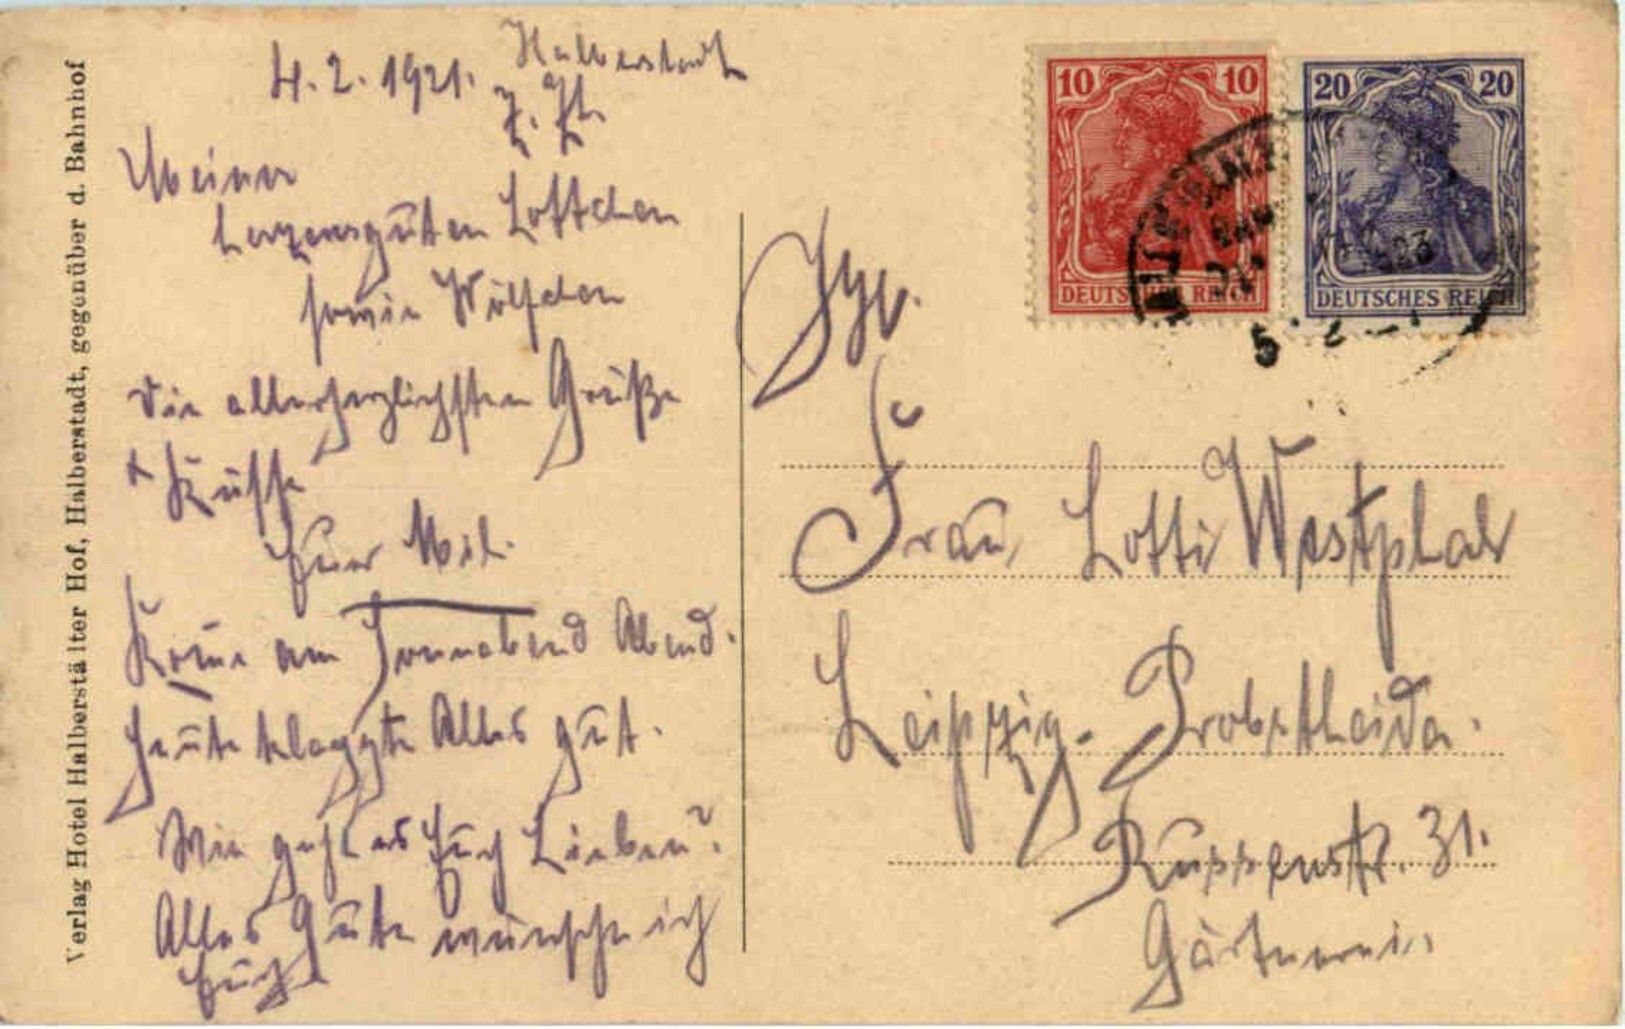 Verlag Hotel Halberstälter Hof, Halberstadt, gegenüber d. Bahnhof
4.2.1921. Halberstadt
z. Zt.
Meiner
herzensguten Lottchen
sowie Wölfchen
die allerherzlichsten Grüße
+ Küsse
Euer
Kome am Sonnabend Abend.
Heute klappte Alles gut.
Wie geht es Euch Lieben?
Alles Gute wünsche ich
Euch
10 10
DEUTSCHES REICH
20 20
DEUTSCHES REICH
Frau Lotti Westphal
Leipzig-Probstheida.
31.
Gärtnerei.